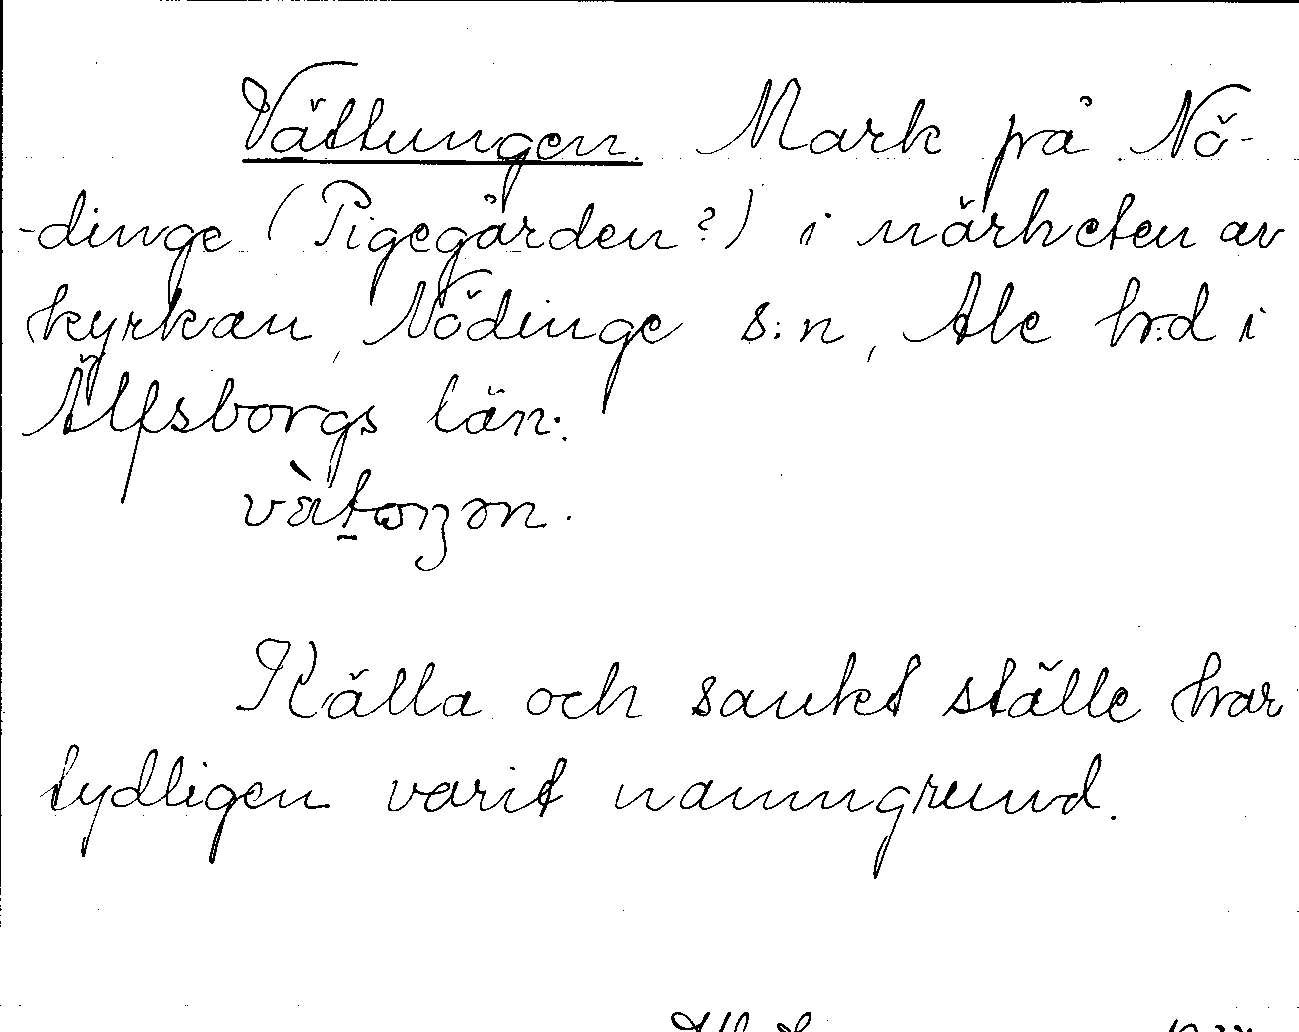 Vättungen. Mark på Nö-
-dinge (Pigegården?) i närheten av
kyrkan, Nödinge s:n, Ale h:d i
Älfsborgs län.
Källa och sankt ställe har
tydligen varit namngrund.